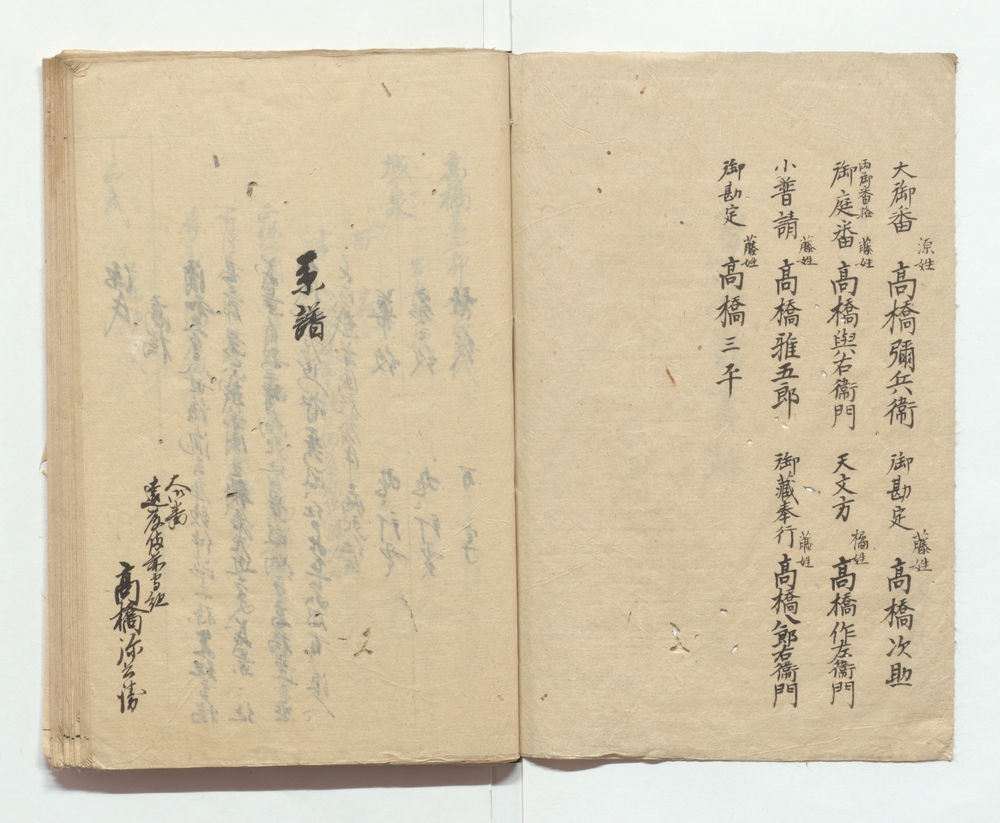 大御番 源姓 高橋彌兵衞
御勘定 藤姓 高橋次助
両御番格 御庭番 藤姓 高橋與右衞門
天文方 橘姓 高橋作左衞門
小普請 藤姓 高橋雅五郎
御藏奉行 藤姓 高橋八郎右衞門
御勘定 藤姓 高橋三平
系譜
大御番
高橋弥兵衛